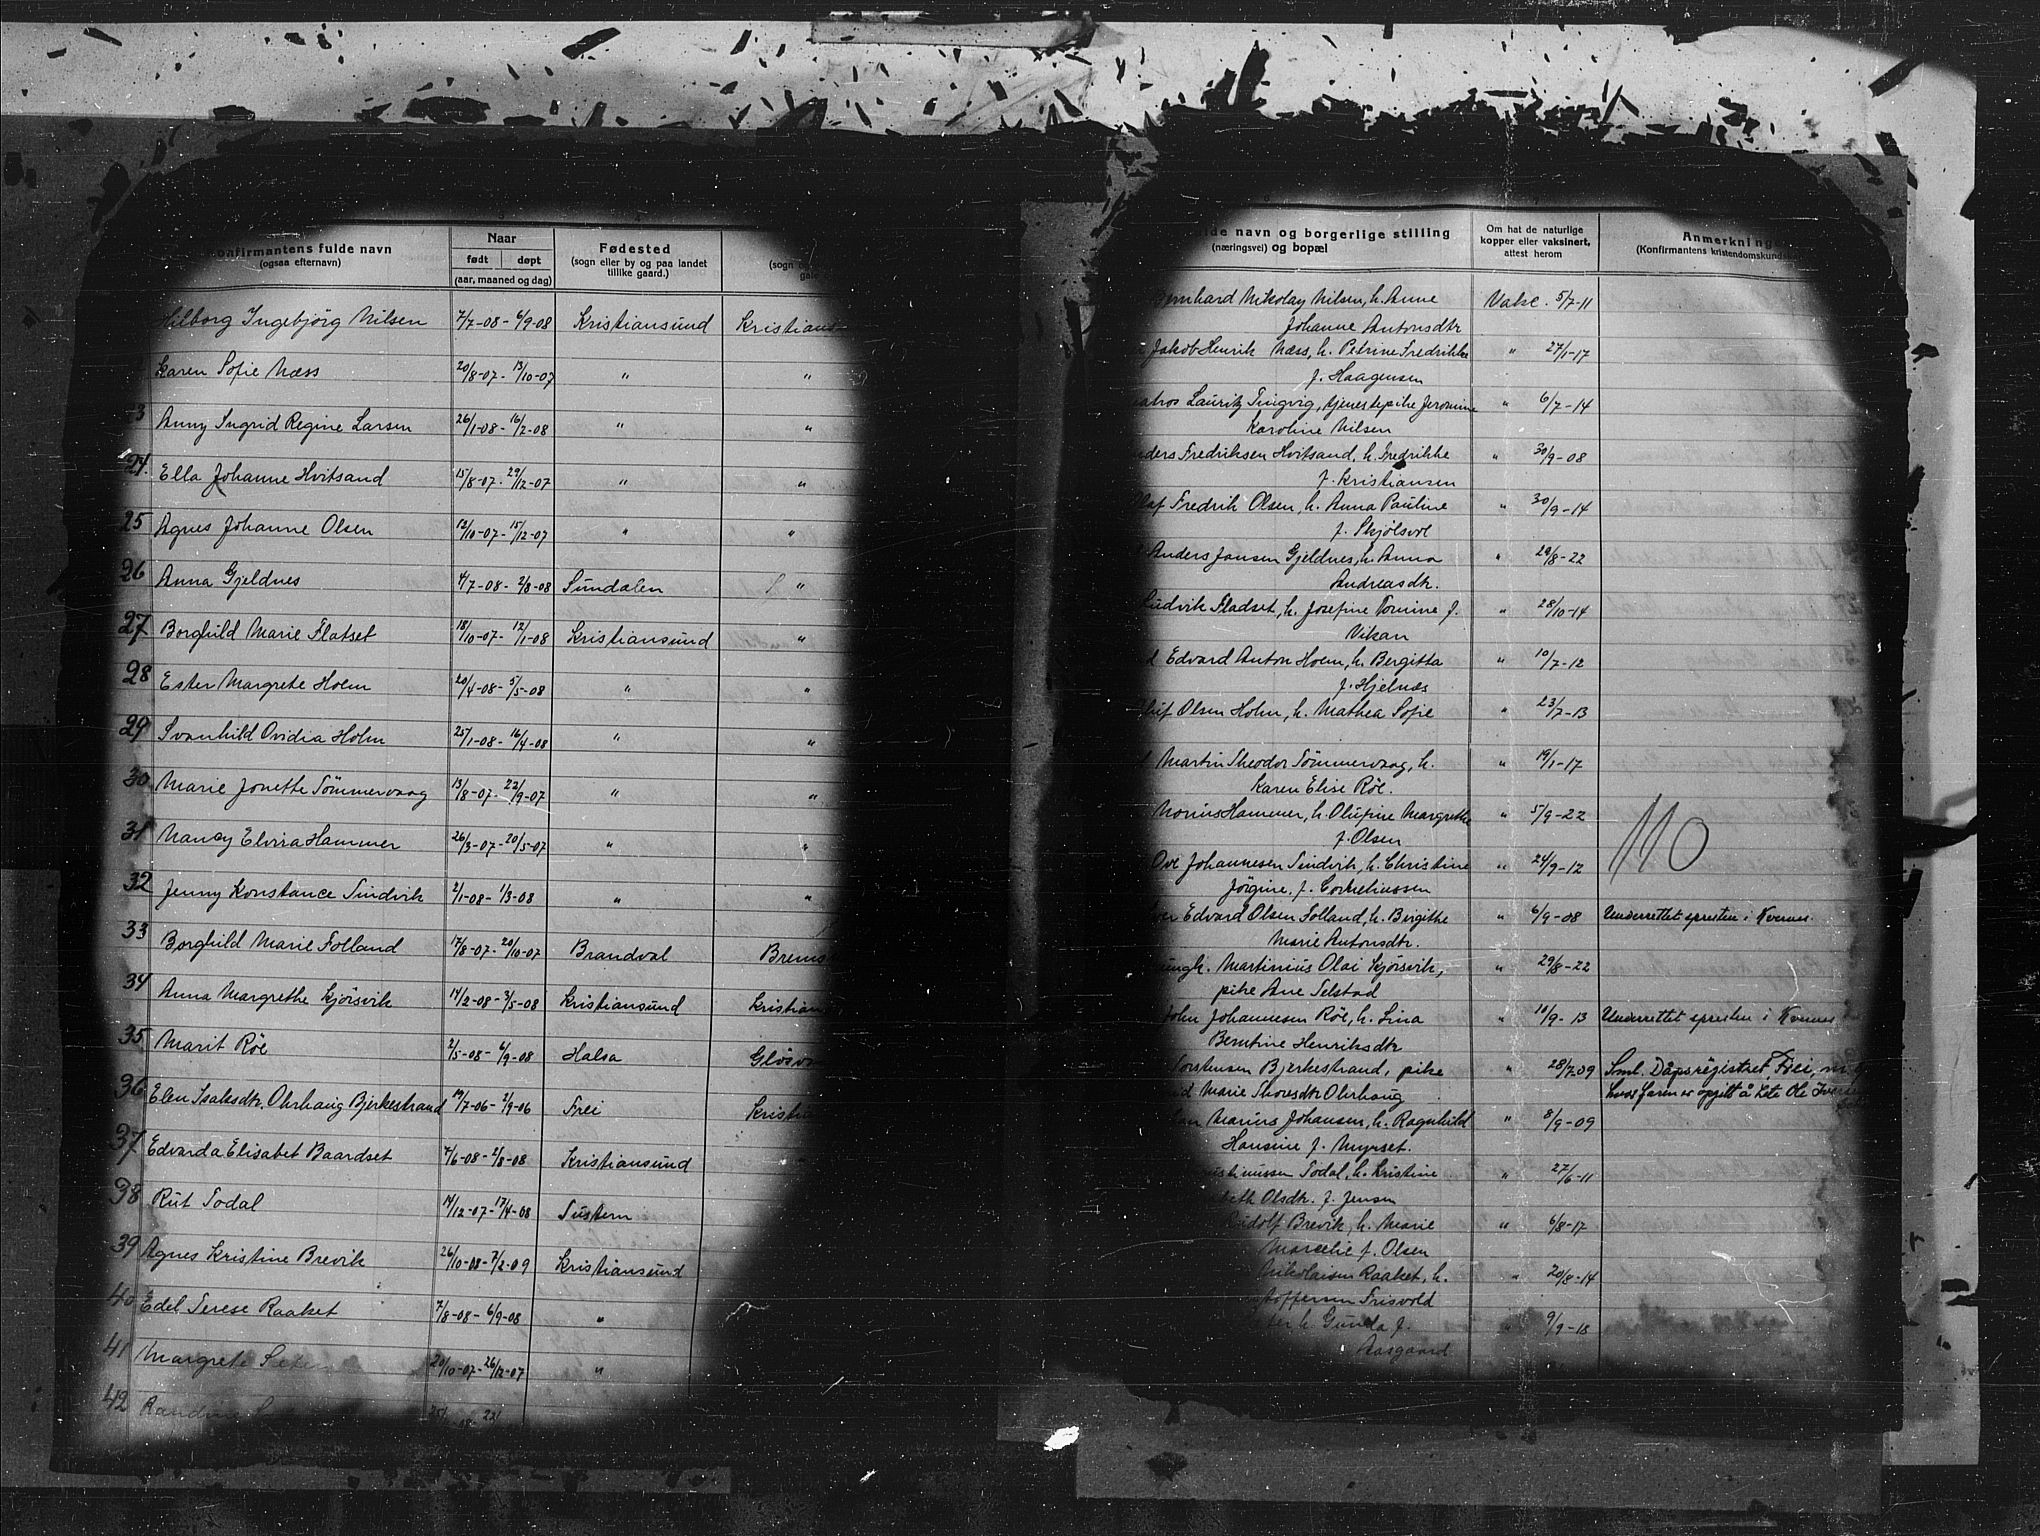 Konfirmantens fulde navn
(ogsaa efternavn)
Naar
født døpt
(aar, maaned og dag)
Fødested
(sogn eller by og paa landet
tillike gaard.)
(sogn
Hilborg Ingebjørg Nilsen 7/7-08 - 6/9-08 Kristiansund Kristians
Karen Sofie Næss 20/8-07 - 13/10-07 " "
3 Anny Ingrid Regine Larsen 26/1-08 - 16/2-08 " "
24. Ella Johanne Hvitsand 15/8-07 - 29/12-07 " "
25 Agnes Johanne Olsen 12/10-07 - 15/12-07 " "
26 Anna Gjeldnes 4/7-08 - 2/8-08 Sundalen "
27 Borghild Marie Flatset 18/10-07 - 12/1-08 Kristiansund "
28 Ester Margrete Holm 20/4-08 - 5/5-08 " "
29 Svanhild Ovidia Holm 25/1-08 - 16/4-08 " "
30 Marie Jonette Sömmervaag 13/8-07 - 22/9-07 " "
31 Nancy Elvira Hammer 26/3-07 - 20/5-07 " "
32 Jenny Konstance Sundvik 2/1-08 - 1/3-08 " "
33 Borghild Marie Folland 17/8-07 - 20/10-07 Brandval Brems
34 Anna Margrethe Kjörsvik 14/2-08 - 3/5-08 Kristiansund Kristian
35 Marit Röe 2/5-08 - 6/9-08 Halsa
36 Elen Isaksdtr. Ohrhaug Bjerkestrand 19/7-06 - 2/9-06 Frei Krist
37 Edvarda Elisabet Baardset 7/6-08 - 2/8-08 Kristiansund
38 Rut Todal 14/12-07 - 17/4-08 Tustern
39 Agnes Kristine Brevik 26/10-08 - 7/2-09 Kristiansund
40 Edel Terese Raaket 7/8-08 - 6/9-08 "
41 Margrete 20/10-07 - 26/12-07 "
42
navn og borgerlige stilling
(næringsvei) og bopæl
Om hat de naturlige
kopper eller vaksinert,
attest herom
Anmerkninge
(Konfirmantens kristendomskunds
Bernhard Nikolay Nilsen, h. Anne Vakc. 5/7-11
Johanne Antonsdtr
Jakob Henrik Næss, h. Petrine Fredrikke " 27/1-17
f. Haagensen
Lauritz Tingvig, tjenestepike Jeronime " 6/7-14
Karoline Nilsen
Fredriksen Hvitsand, h. Fredrikke " 30/9-08
f. Kristiansen
Fredrik Olsen, h. Anna Pauline " 30/9-14
f. Skjölsvol
Anders Jansen Gjeldnes, h. Anna " 29/8-22
Andreasdtr.
Ludvik Fladset, h. Josefine Tomine f. " 28/10-14
Vikan
Edvard Anton Holm, h. Bergitta " 10/7-12
f. Hjelnæs
Olsen Holm, h. Mathea Sofie " 23/7-13
Martin Theodor Sömmervaag, h. " 19/1-17
Karen Elise Röe.
Hammer, h. Olufine Margrethe " 5/9-22
f. Olsen
110
Ove Johannesen Sundvik, h. Christine " 24/9-12
Jörgine, f. Corneliussen
Edvard Olsen Folland, h. Birgithe " 6/9-08 Underrettet spresten i Kvernes.
Marie Antonsdtr.
ungk. Martinius Olai Kjörsvik, " 29/8-22
pike Ane Selstad
John Johannesen Röe, h. Lina " 10/9-13 Underrettet spresten i Kvernes
Berntine Henriksdtr
Torstensen Bjerkestrand, pike " 28/7-09 Sml. Dåpsregistret, Frei,
Marie Thoresdtr Ohrhaug hvor faren er opgitt å hete Ole
Marius Johansen, h. Ragnhild " 8/9-09
Hansine f. Myrset.
Todal, h. Kristine " 27/6-11
Olsdtr. f. Jensen
Rudolf Brevik, h. Marie " 6/8-17
Marcelie f. Olsen
Nikolaisen Raaket, h. " 20/8-14
Frisvold
h. Gunda f. " 9/9-18
Aasgaard